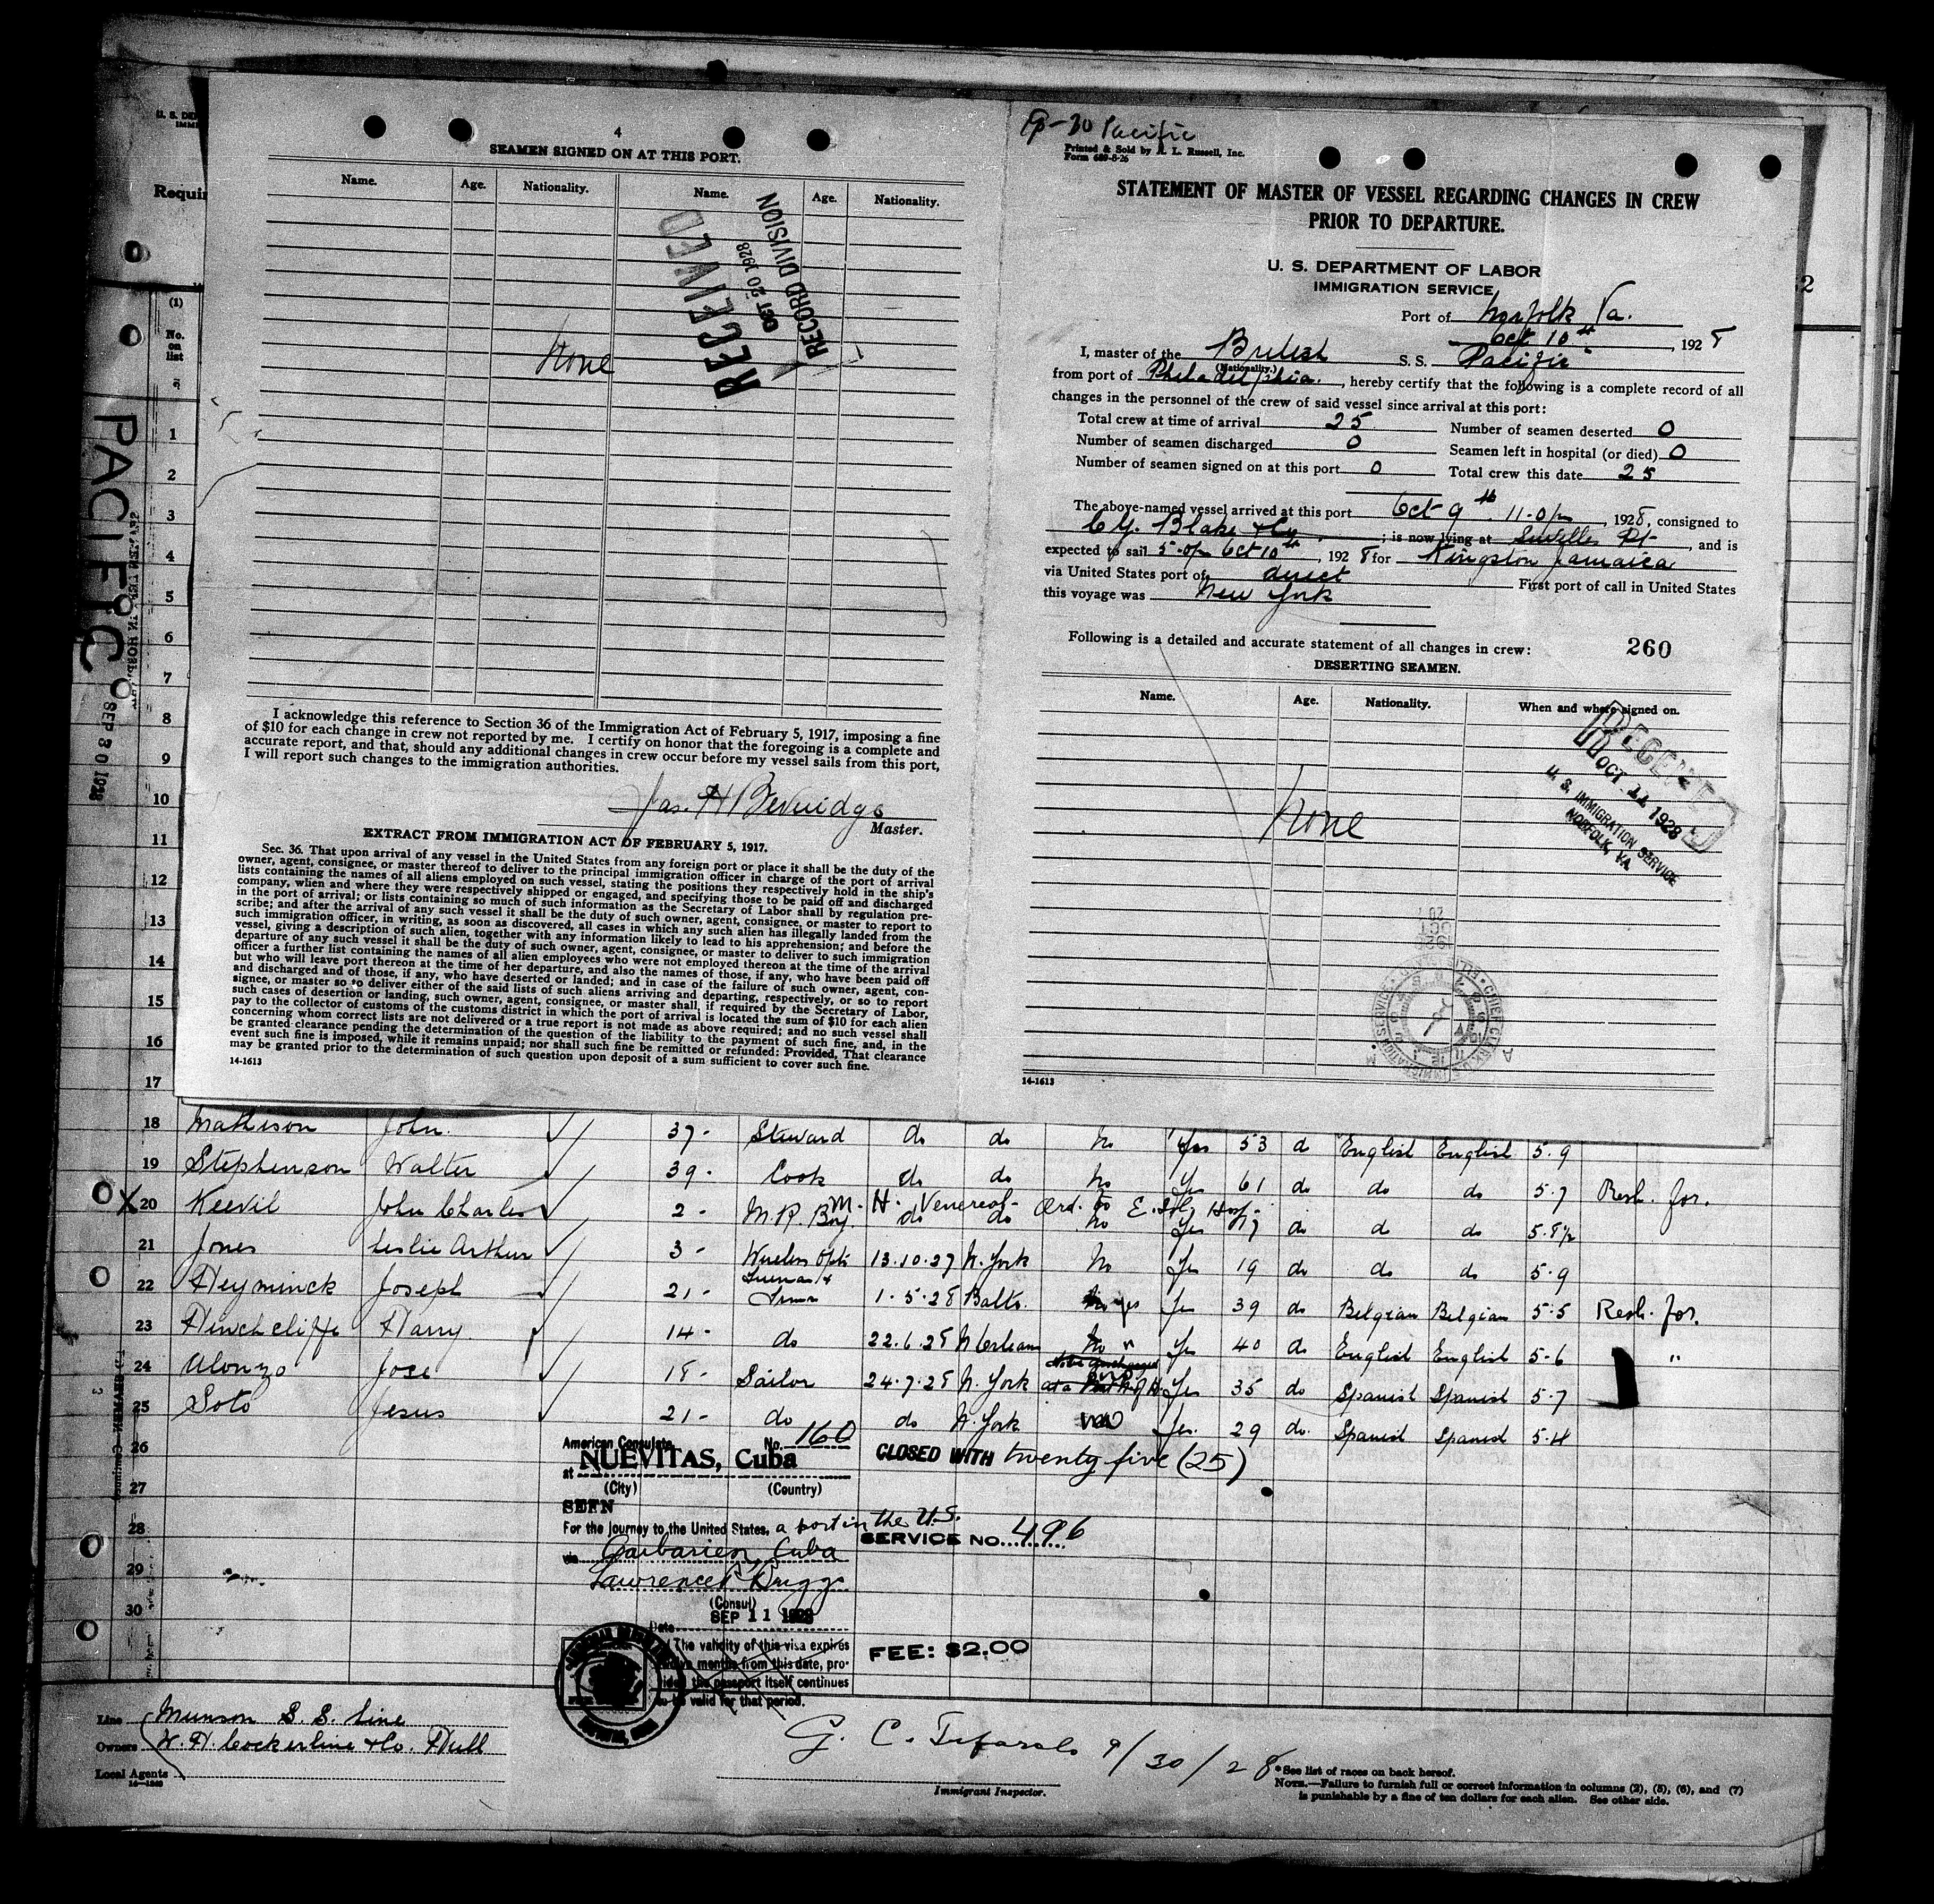 4
SEAMEN SIGNED ON AT THIS PORT.
Name. Age. Nationality. Name. Age. Nationality.
RECEIVED
OCT 20 1928
RECORD DIVISION
None
I acknowledge this reference to Section 36 of the Immigration Act of February 5, 1917, imposing a fine
of $10 for each change in crew not reported by me. I certify on honor that the foregoing is a complete and
accurate report, and that, should any additional changes in crew occur before my vessel sails from this port,
I will report such changes to the immigration authorities.
Jas. H Beveridge
Master.
EXTRACT FROM IMMIGRATION ACT OF FEBRUARY 5, 1917.
Sec. 36. That upon arrival of any vessel in the United States from any foreign port or place it shall be the duty of the
owner, agent, consignee, or master thereof to deliver to the principal immigration officer in charge of the port of arrival
lists containing the names of all aliens employed on such vessel, stating the positions they respectively hold in the ship's
company, when and where they were respectively shipped or engaged, and specifying those to be paid off and discharged
in the port of arrival; or lists containing so much of such information as the Secretary of Labor shall by regulation pre-
scribe; and after the arrival of any such vessel it shall be the duty of such owner, agent, consignee, or master to report to
such immigration officer, in writing, as soon as discovered, all cases in which any such alien has illegally landed from the
vessel, giving a description of such alien, together with any information likely to lead to his apprehension; and before the
departure of any such vessel it shall be the duty of such owner, agent, consignee, or master to deliver to such immigration
officer a further list containing the names of all alien employees who were not employed thereon at the time of the arrival
but who will leave port thereon at the time of her departure, and also the names of those, if any, who have been paid off
and discharged and of those, if any, who have deserted or landed; and in case of the failure of such owner, agent, con-
signee, or master so to deliver either of the said lists of such aliens arriving and departing, respectively, or so to report
such cases of desertion or landing, such owner, agent, consignee, or master shall, if required by the Secretary of Labor,
pay to the collector of customs of the customs district in which the port of arrival is located the sum of $10 for each alien
concerning whom correct lists are not delivered or a true report is not made as above required; and no such vessel shall
be granted clearance pending the determination of the question of the liability to the payment of such fine, and, in the
event such fine is imposed, while it remains unpaid; nor shall such fine be remitted or refunded: Provided, That clearance
may be granted prior to the determination of such question upon deposit of a sum sufficient to cover such fine.
14-1613
9-30 Pacific
Printed & Sold by A. L. Russell, Inc.
Form 689-8-26
STATEMENT OF MASTER OF VESSEL REGARDING CHANGES IN CREW
PRIOR TO DEPARTURE.
U. S. DEPARTMENT OF LABOR
IMMIGRATION SERVICE
Port of Norfolk Va.
Oct 10th, 1928
I, master of the British S. S. Pacific
(Nationality.)
from port of Philadelphia, hereby certify that the following is a complete record of all
changes in the personnel of the crew of said vessel since arrival at this port:
Total crew at time of arrival 25 Number of seamen deserted 0
Number of seamen discharged 0 Seamen left in hospital (or died) 0
Number of seamen signed on at this port 0 Total crew this date 25
The above-named vessel arrived at this port Oct 9th 11-0pm, 1928, consigned to
C G. Blake & Co; is now lying at Sewells Pt, and is
expected to sail 5-0pm Oct 10th, 1928 for Kingston Jamaica
via United States port of direct First port of call in United States
this voyage was New York
Following is a detailed and accurate statement of all changes in crew: 260
DESERTING SEAMEN.
Name. Age. Nationality. When and where signed on.
RECEIVED
OCT 11 1928
U. S. IMMIGRATION SERVICE
NORFOLK, VA.
None
14-1613
U. S. DE
IMM
Requir
(1)
No.
on
list
PACIFIC
SEP 30 1928
1
2
3
4
5
6
7
8
9
10
11
12
13
14
15
16
17
18 Mathison John. 37- Steward do do No Yes 53 d English English 5.9
19 Stephenson Walter 39- Cook do do No Yes 61 do do do 5.7 Resh. for.
M. H. Venereal- Ord. to E. Isl. Hosp.
X 20 Keevil John Charles 2- M.R. Boy do do No Yes 19 do d do 5.8½
21 Jones Leslie Arthur 3- Wireless Optr 13.10.27 N. York No Yes 19 do do do 5.9
22 Heyminck Joseph 21- 1.5.28 Balto. yes Yes 39 do Belgian Belgian 5:5 Resh. for.
23 Hinchcliffe Harry 14- do 22.6.28 N Orleans No " Yes 40 do English English 5.6 "
24 Alonzo Jose 18- Sailor 24.7.28 N. York Yes 35 do Spanish Spanish 5.7
25 Soto Jesus 21- do do N. York Yes. 29 do. Spanish Spanish 5.4
26
27
28
29
30
American Consulate No. 160
at NUEVITAS, Cuba
(City) (Country)
SEEN
For the journey to the United States, a port in the U.S.
via Caibarien, Cuba
Lawrence P. Briggs
(Consul)
Date SEP 11 1928
The validity of this visa expires
twelve months from this date, pro-
vided the passport itself continues
to be valid for that period.
CLOSED WITH twenty five (25)
SERVICE NO. 496
FEE: $2.00
Line Munson S. S. Line
Owners W. H. Cockerline & Co. Hull
Local Agents
9/30/28
Immigrant Inspector.
*See list of races on back hereof.
NOTE.—Failure to furnish full or correct information in columns (2), (5), (6), and (7)
is punishable by a fine of ten dollars for each alien. See other side.